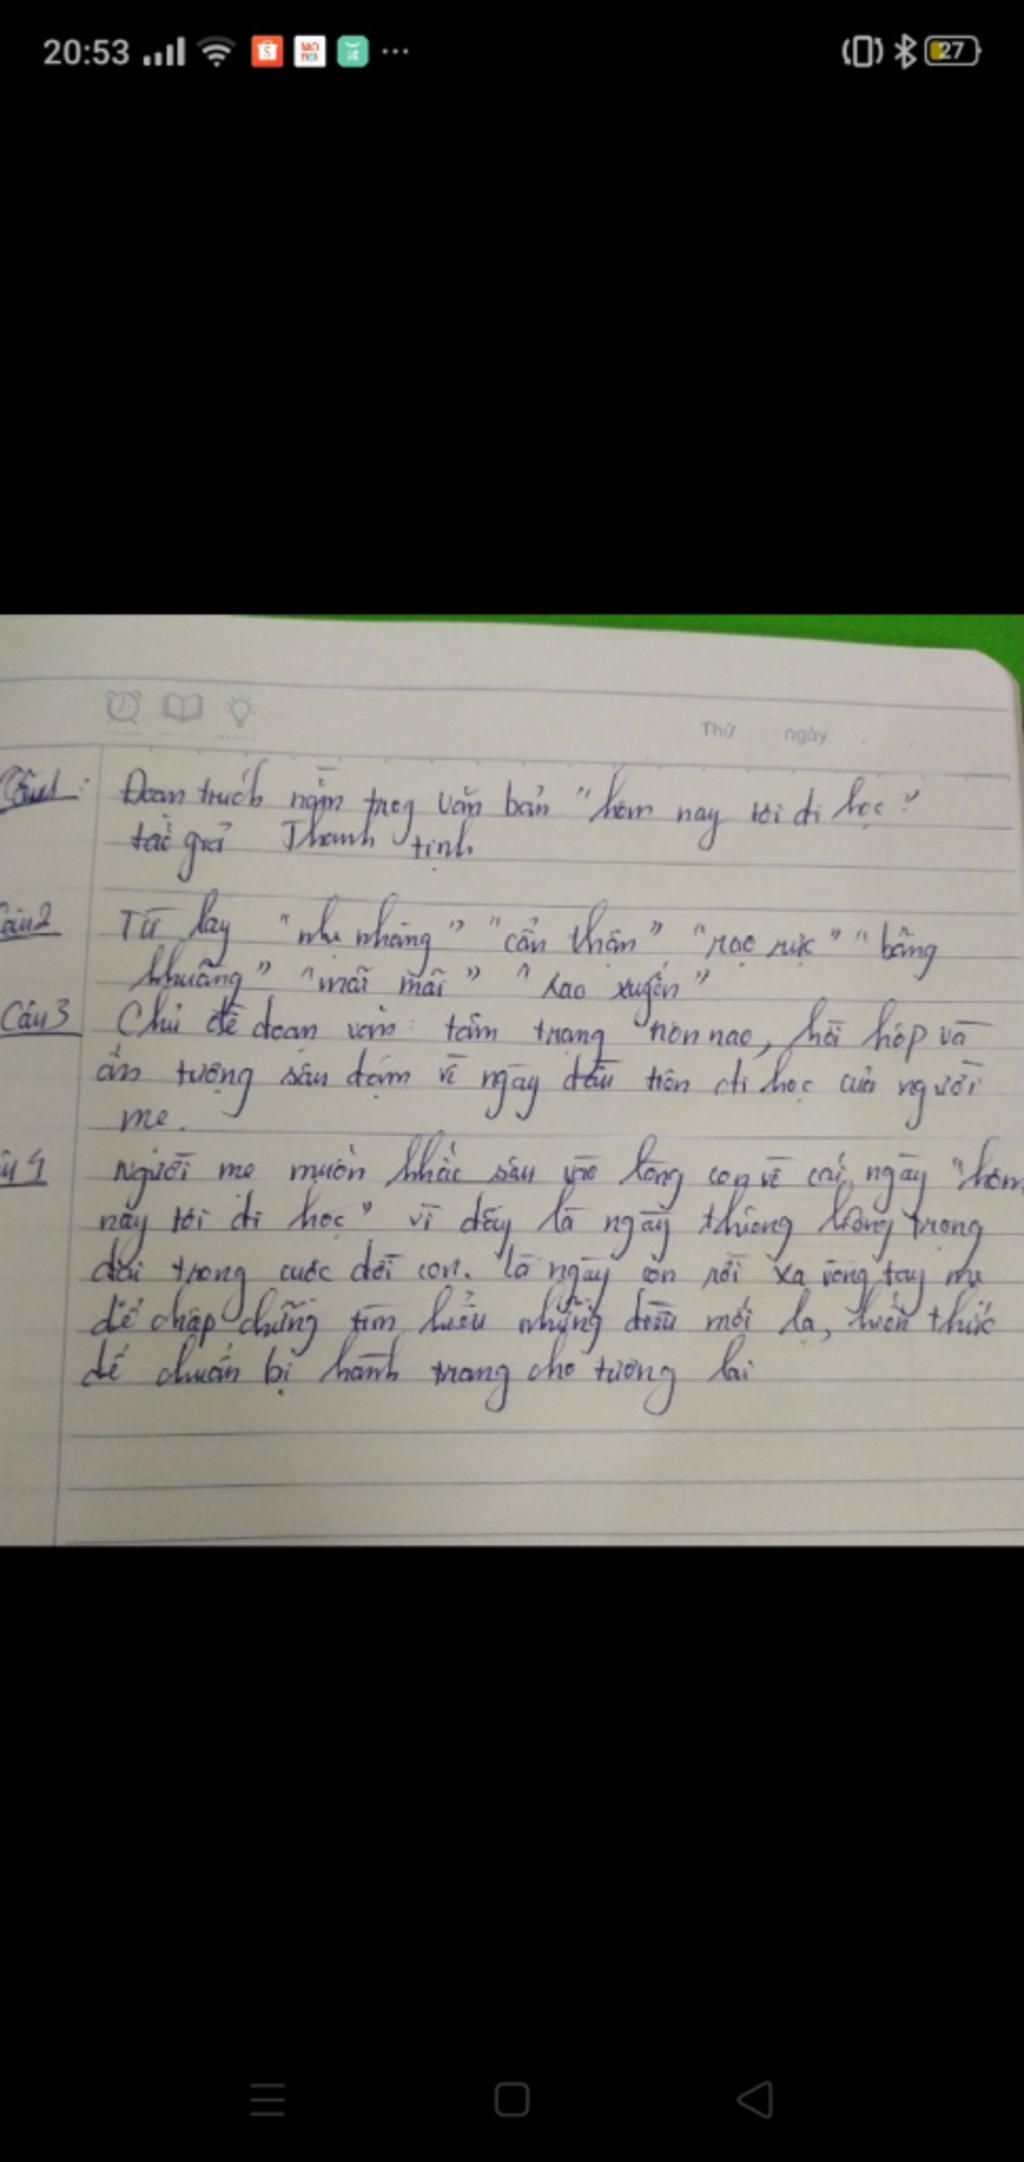 20:53
27
Thứ ngày
Câu1: Đoạn trích nằm trog văn bản "hôm nay tôi đi học"
tác giả Thanh tịnh
Câu2 Từ láy "nhẹ nhàng" "cẩn thận", "rạo rực" "bâng
khuâng" "mãi mãi" "xao xuyến"
Câu3 Chủ đề đoạn văn: tâm trạng nôn nao, hồi hộp và
ấn tượng sâu đậm về ngày đầu tiên đi học của người
mẹ.
4 Người mẹ muốn khắc sâu vào lòng con về cái ngày "hôm
nay tôi đi học" vì đấy là ngày thiêng liêng trọng
đại trong cuộc đời con. là ngày con rời xa vòng tay mẹ
để chập chững tìm hiểu những điều mới lạ, kiến thức
để chuẩn bị hành trang cho tương lai